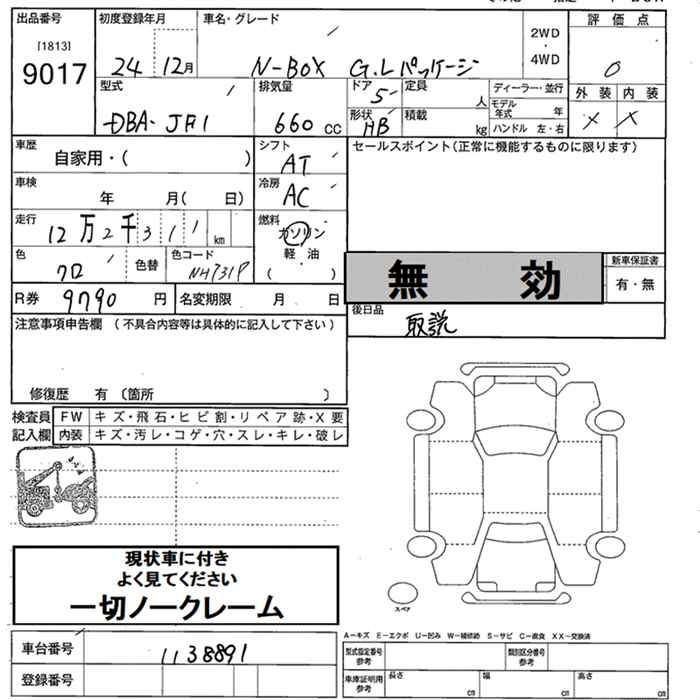 出品番号 初度登録年月 車名・グレード 2WD・4WD 評価点
[1813]
9017 24 12月 N-BOX G.Lパッケージ 0
型式 排気量 ドア 定員 ディーラー・並行 外装 内装
DBA-JF1 660cc 5 人 モデル年式 年 X X
形状 HB 積載 kg ハンドル 左・右
車歴 自家用・( ) シフト AT セールスポイント(正常に機能するものに限ります)
車検 年 月( 日) 冷房 AC
走行 12万2千311km 燃料 ガソリン
軽油
( )
色 クロ 色替 色コード NH731P 無効 新車保証書
有・無
R券 9790円 名変期限 月 日 後日品 取説
注意事項申告欄 (不具合内容等は具体的に記入して下さい)
修復歴 有 〔箇所 〕
検査員記入欄 FW キズ・飛石・ヒビ割・リペア跡・X要
内装 キズ・汚レ・コゲ・穴・スレ・キレ・破レ
現状車に付き
よく見てください
一切ノークレーム
スペア
A-キズ E-エクボ U-凹み W-補修跡 S-サビ C-腐食 XX-交換済
車台番号 1138891 型式指定番号参考 類別区分番号参考
登録番号 車庫証明用参考 長さ cm 幅 cm 高さ cm